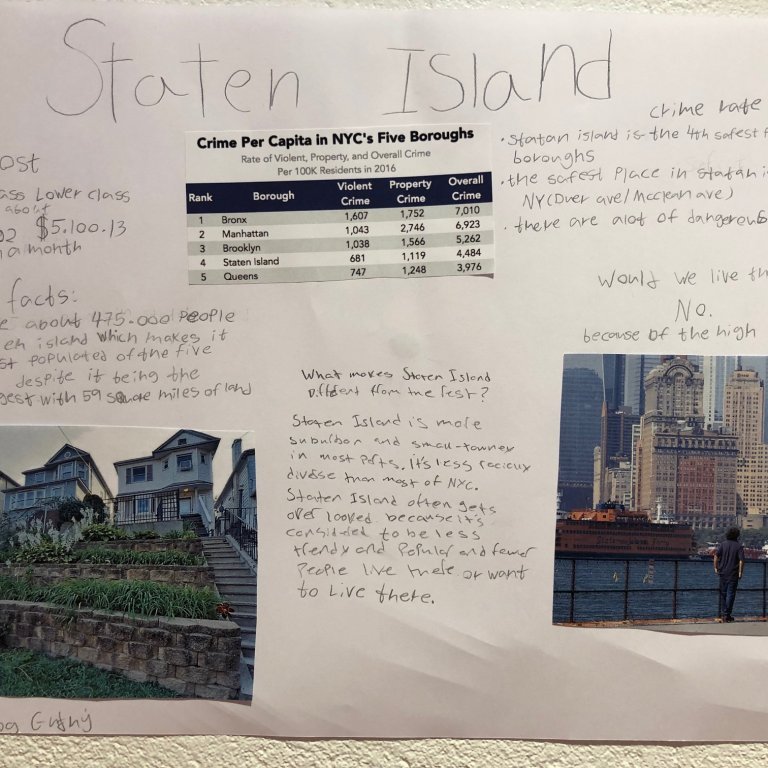 Staten Island
ost
ass Lower class
about
92 $5.100.13
a month
facts:
e about 475.000 people
en island which makes it
st populated of the five
despite it being the
gest with 59 square miles of land
Crime Per Capita in NYC's Five Boroughs
Rate of Violent, Property, and Overall Crime
Per 100K Residents in 2016
Rank Borough Violent Crime Property Crime Overall Crime
1 Bronx 1,607 1,752 7,010
2 Manhattan 1,043 2,746 6,923
3 Brooklyn 1,038 1,566 5,262
4 Staten Island 681 1,119 4,484
5 Queens 747 1,248 3,976
crime rate
• statan island is the 4th safest f
boroughs
• the safest place in statan i
NY (Dver ave/Mcclean ave)
• there are alot of dangerous
Would we live th
No.
because of the high
What makes Staten Island
Different from the rest?
Staten Island is more
suburban and small-towney
in most parts. it's less
diverse than most of NYC.
Staten Island often gets
over looked because it's
considered to be less
trendy and Popular and fewer
People live there or want
to Live there.